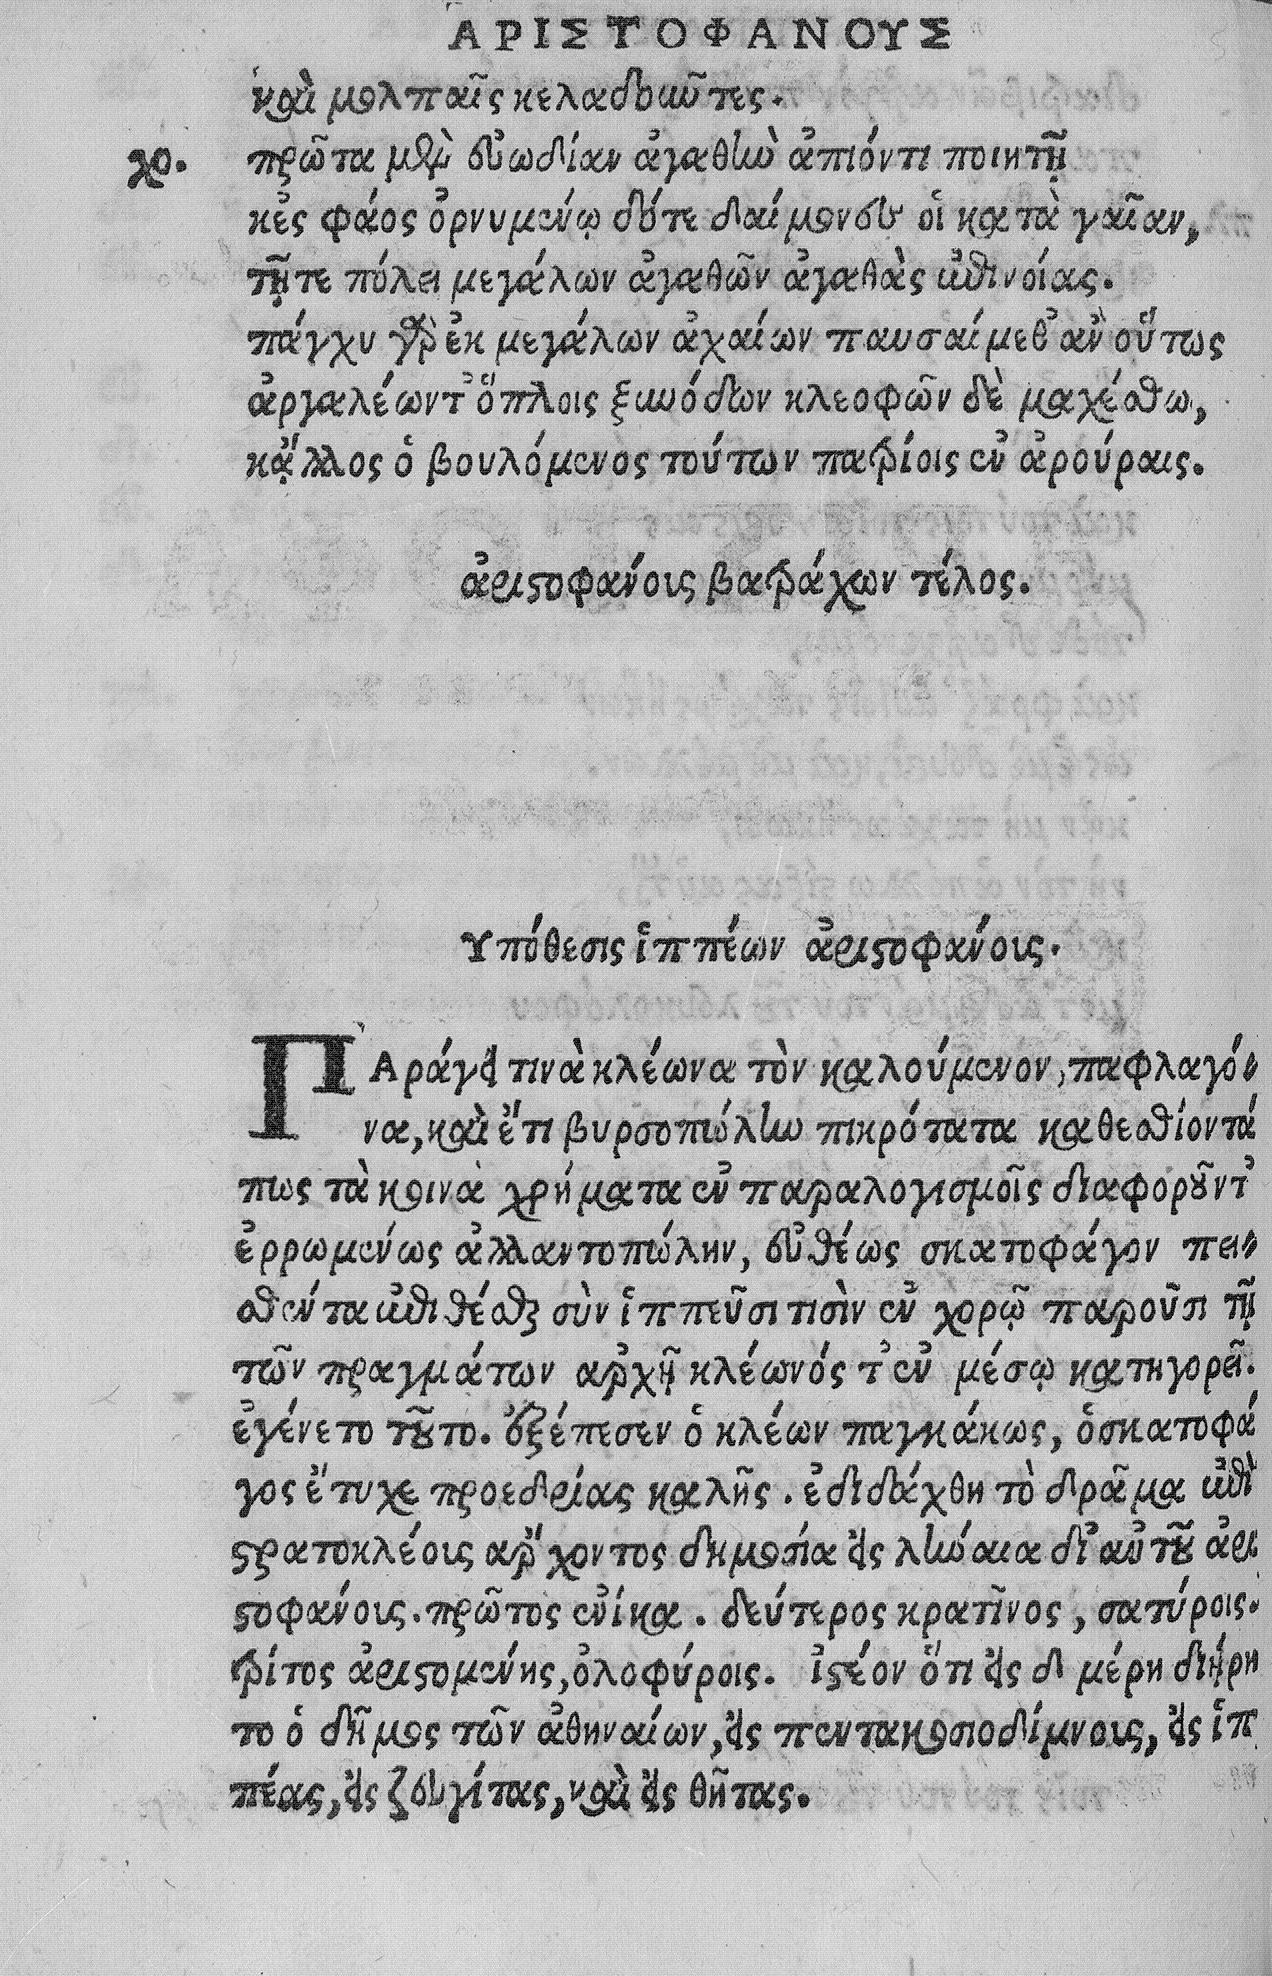 ΑΡΙΣΤΟΦΑΝΟΥΣ
καὶ μολπαῖς κελαδοῦντες.
χο. πρῶτα μὲν εὐωδίαν ἀγαθὴν ἀπιόντι ποιητῇ
κἐς φάος ὀρνυμένῳ δότε δαίμονες οἱ κατὰ γαῖαν,
τῇ τε πόλει μεγάλων ἀγαθῶν ἀγαθὰς ἐπινοίας.
πάγχυ γὰρ ἐκ μεγάλων ἀχαίων παυσαίμεθ' ἂν οὕτως
ἀργαλέων τ' ὅπλοις ξυνόδων κλεοφῶν δὲ μαχέσθω,
κᾄλλος ὁ βουλόμενος τούτων πατρίοις ἐν ἀρούραις.
ἀριστοφάνους βατράχων τέλος.
Υπόθεσις ἱππέων ἀριστοφάνους.
ΠΑράγει τινὰ κλέωνα τὸν καλούμενον, παφλαγό-
να, καὶ ἔτι βυρσοπώλην πικρότατα κατεσθίοντά
πως τὰ κοινὰ χρήματα ἐν παραλογισμοῖς διαφοροῦντ'
ἐρρωμένως ἀλλαντοπώλην, εὐθέως σκατοφάγον πει-
σθέντα ἐπιθέσθαι σὺν ἱππεῦσι τισὶν ἐν χορῷ παροῦσι τῇ
τῶν πραγμάτων ἀρχῇ κλέωνός τ' ἐν μέσῳ κατηγορεῖ.
ἐγένετο τοῦτο. ἐξέπεσεν ὁ κλέων παγκάκως, ὁ σκατοφά
γος ἔτυχε προεδρίας καλῆς. ἐδιδάχθη τὸ δρᾶμα ἐπὶ
στρατοκλέους ἄρχοντος δημοσία εἰς λήναια δι' αὐτοῦ ἀρι
στοφάνους. πρῶτος ἐνίκα. δεύτερος κρατῖνος, σατύροις.
τρίτος ἀριστομένης, ὀλοφύροις. ἰστέον ὅτι εἰς δ μέρη διῄρη
το ὁ δῆμος τῶν ἀθηναίων, εἰς πεντακοσιοδίμνους, εἰς ἱπ
πέας, εἰς ζευγίτας, καὶ εἰς θῆτας.